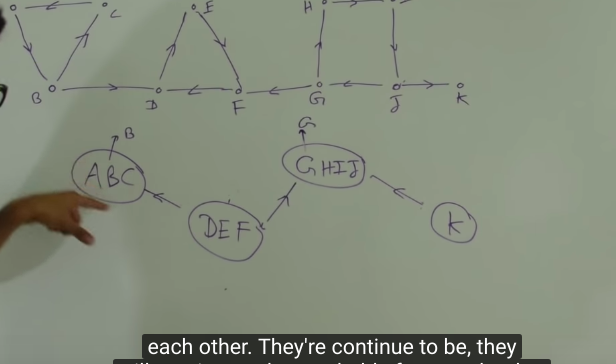 C
E
H
B
D
F
G
J
K
B
G
ABC
GHIJ
DEF
K
each other. They're continue to be, they